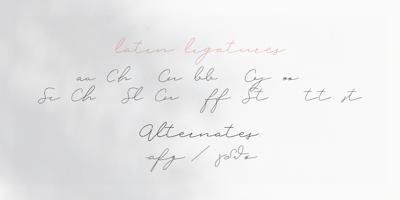 latin ligatures
aa Ch Cu bb Cy oo
Sc Ch Sl Cu ff St tt st
Alternates
afg /